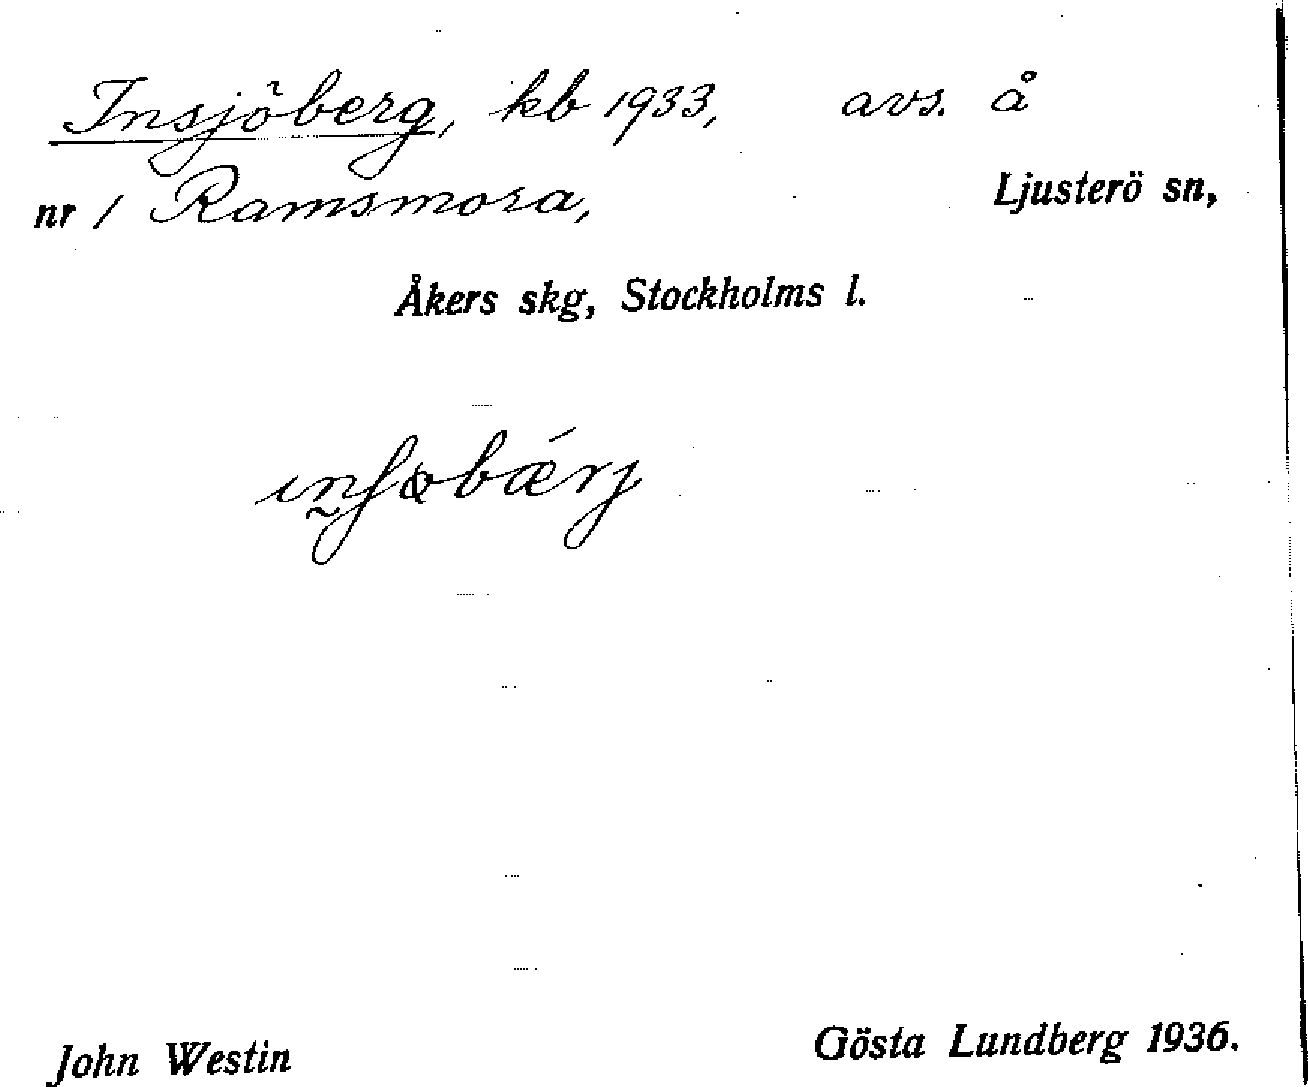 Insjöberg, kb 1933, avs. å
nr 1 Ramsmora, Ljusterö sn,
Åkers skg, Stockholms l.
John Westin Gösta Lundberg 1936.